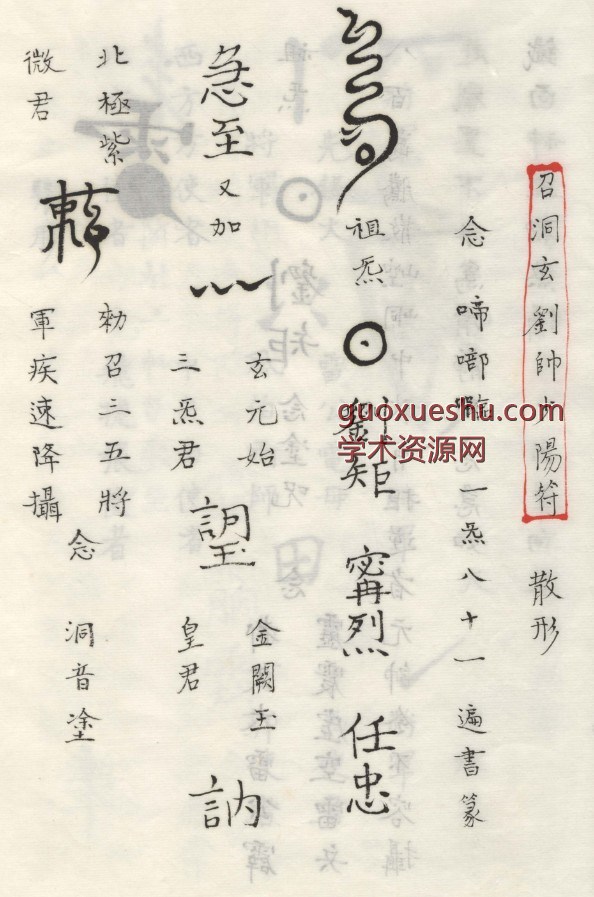 召洞玄劉帥火陽符 散形
念啼啷 一炁八十一遍書篆
祖炁 矩 甯烈 任忠
急至又加
玄元始 金闕玉
三炁君 皇君
訥
北極紫 勅召三五將
微君 軍疾速降攝
念 洞音塗
guoxueshu.com
学术资源网